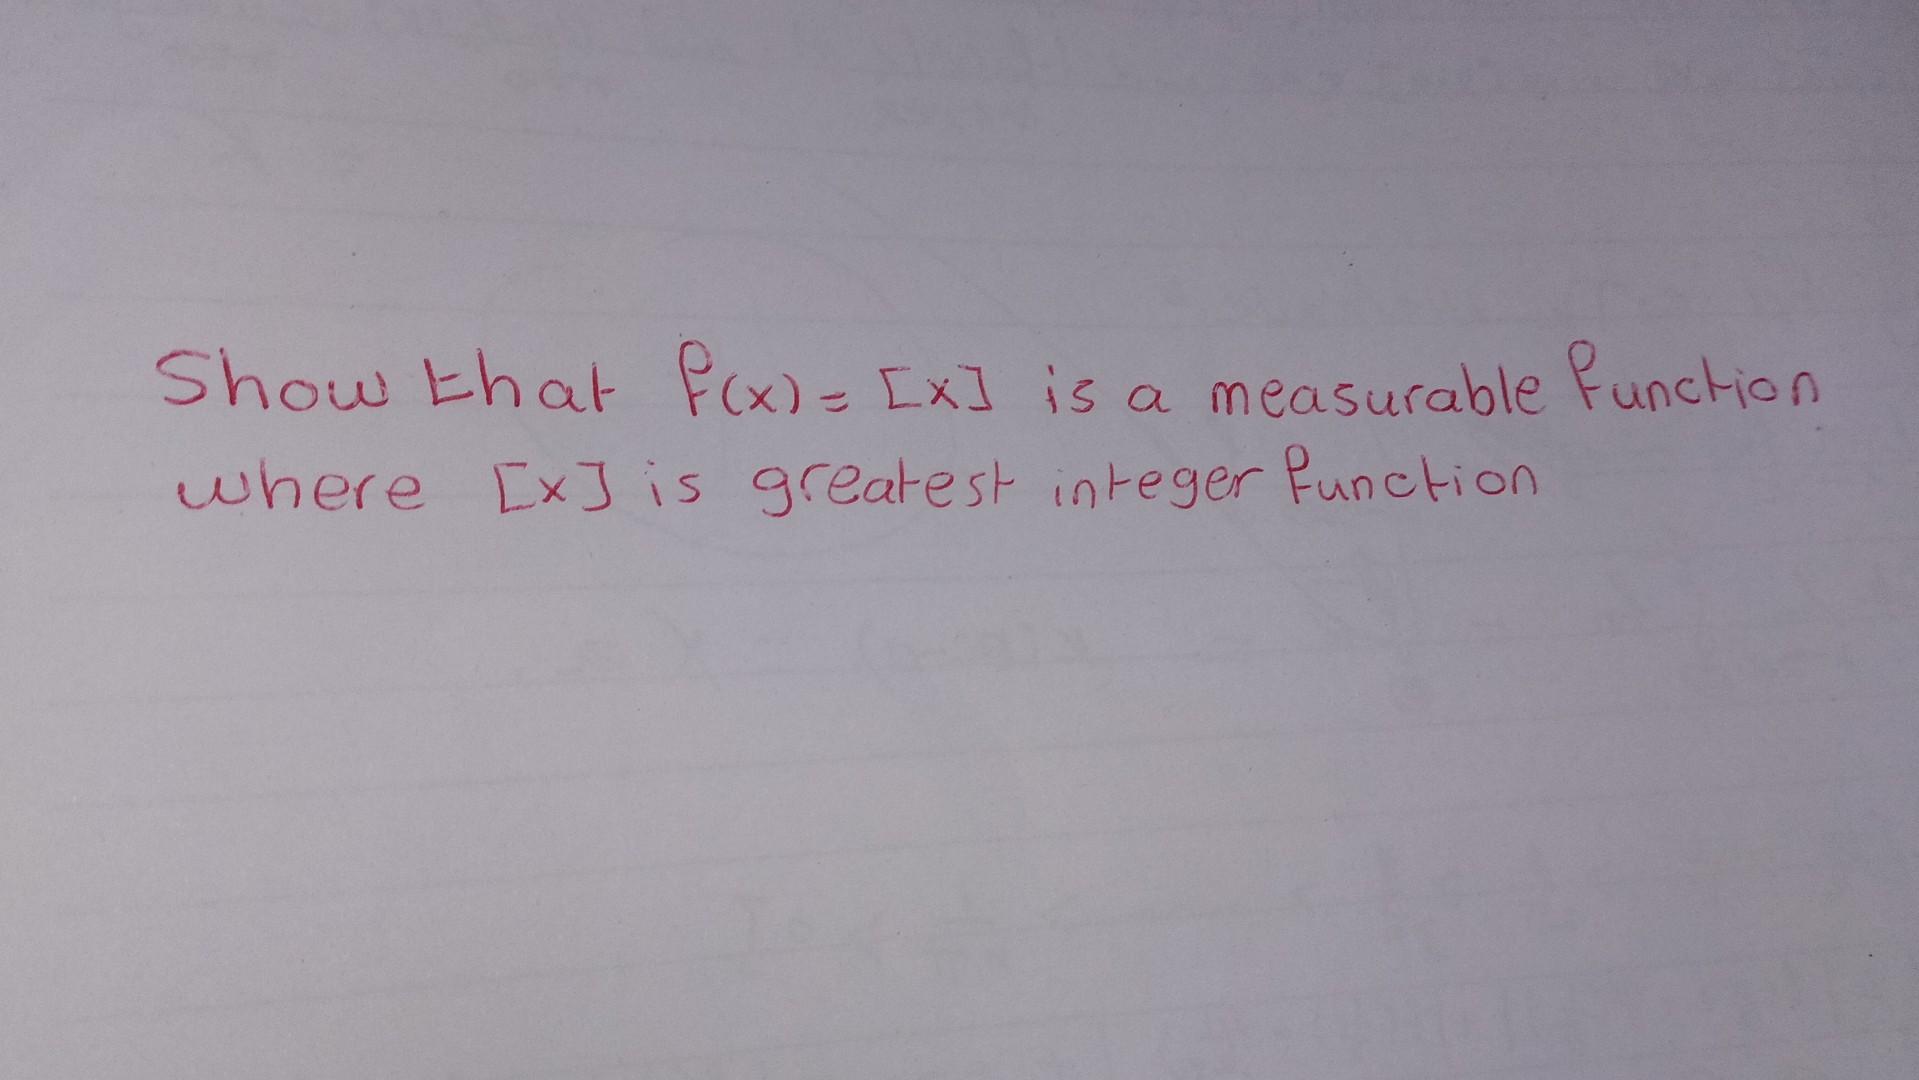 Show that f(x) = [x] is a measurable function
where [x] is greatest integer function